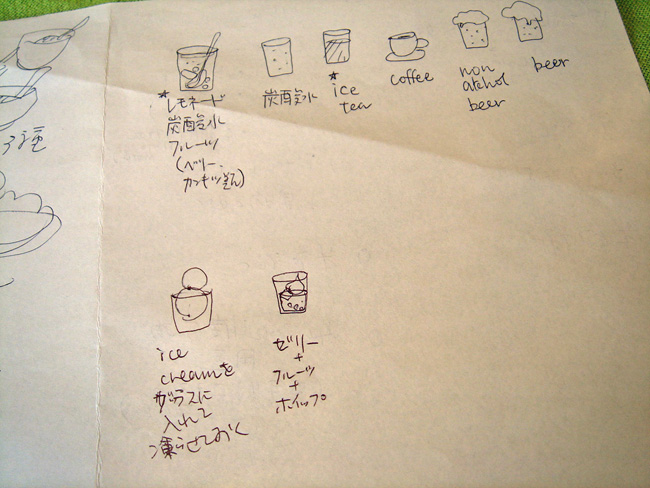 3種
*レモネード
炭酸水
フルーツ
(ベリー、
炭酸水
*ice
tea
coffee
non
alcohol
beer
beer
ice
creamを
グラスに
入れて
凍らせておく
ゼリー
+
フルーツ
+
ホイップ